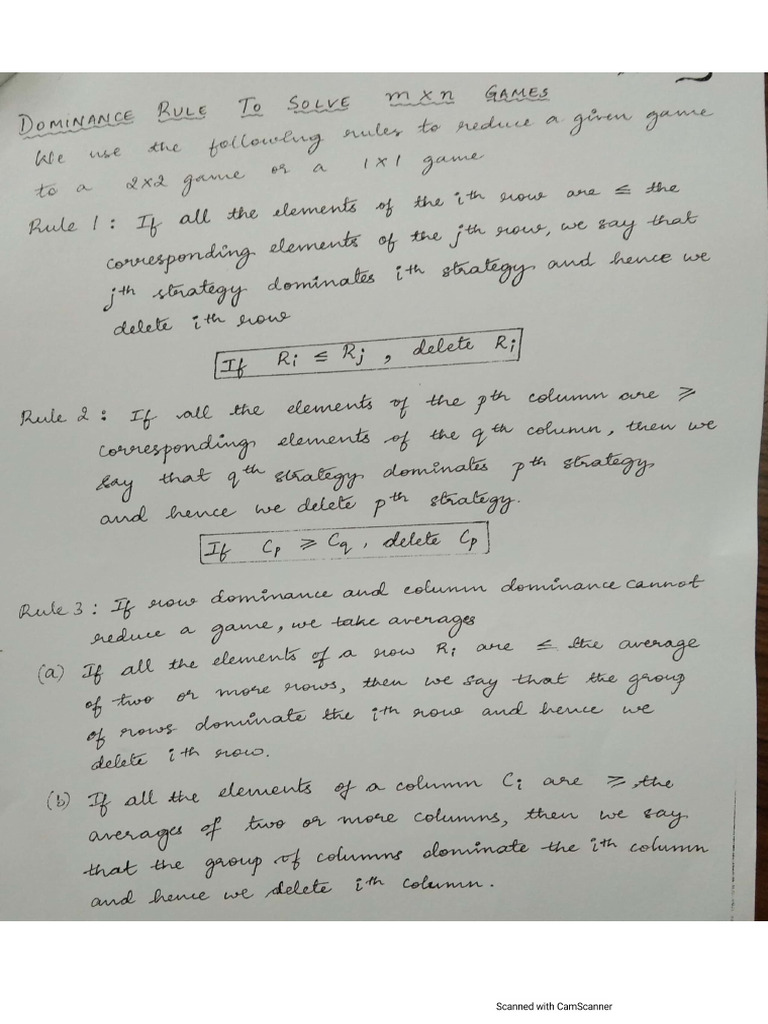 DOMINANCE RULE TO SOLVE m×n GAMES
We use the following rules to reduce a given game
to a 2×2 game or a 1×1 game
Rule 1 : If all the elements of the ith row are ≤ the
corresponding elements of the jth row, we say that
jth strategy dominates ith strategy and hence we
delete ith row
If Ri ≤ Rj , delete Ri
Rule 2 : If all the elements of the pth column are ≥
corresponding elements of the qth column, then we
say that qth strategy dominates pth strategy
and hence we delete pth strategy.
If Cp ≥ Cq, delete Cp
Rule 3 : If row dominance and column dominance cannot
reduce a game, we take averages
(a) If all the elements of a row Ri are ≤ the average
of two or more rows, then we say that the group
of rows dominate the ith row and hence we
delete ith row.
(b) If all the elements of a column Ci are ≥ the
averages of two or more columns, then we say
that the group of columns dominate the ith column
and hence we delete ith column.
Scanned with CamScanner